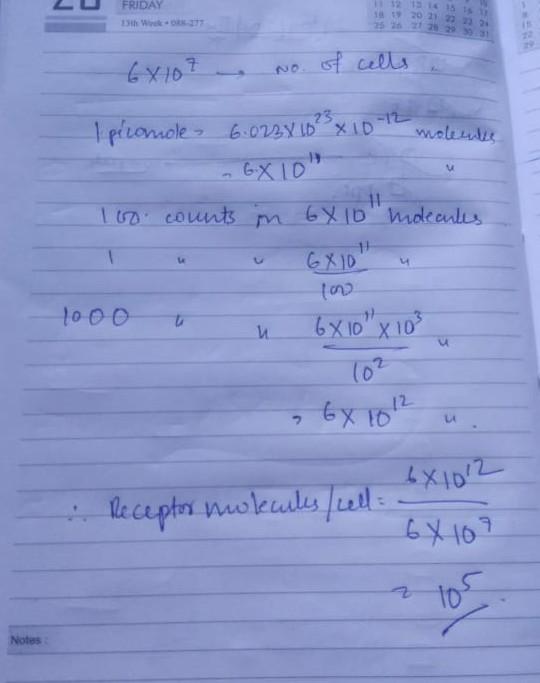 FRIDAY
13th Week • 088-277
11 12 13 14 15 16 17
18 19 20 21 22 23 24
25 26 27 28 29 30 31
6 × 10⁷ → no. of cells.
1 picomole = 6.023 × 10²³ × 10⁻¹² molecules
= 6 × 10¹¹ "
100 counts in 6 × 10¹¹ molecules
1 " " 6 × 10¹¹ / 100 "
1000 " " 6 × 10¹¹ × 10³ / 10² "
= 6 × 10¹² ".
∴ Receptor molecules/cell = 6 × 10¹² / 6 × 10⁷
= 10⁵.
Notes :